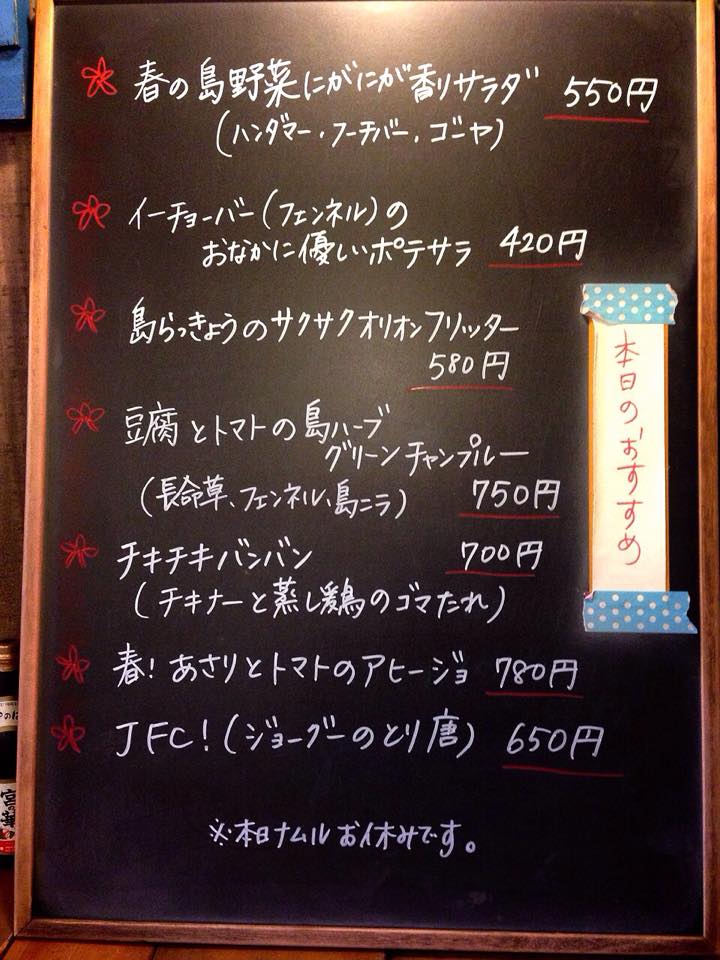 春の島野菜にがにが香りサラダ 550円
(ハンダマー・フーチバー・ゴーヤ)
イーチョーバー(フェンネル)の
おなかに優しいポテサラ 420円
島らっきょうのサクサクオリオンフリッター
580円
豆腐とトマトの島ハーブ
グリーンチャンプルー
(長命草、フェンネル、島ニラ) 750円
チキチキバンバン 700円
(チキナーと蒸し鶏のゴマたれ)
春!あさりとトマトのアヒージョ 780円
JFC!(ジョーグーのとり唐) 650円
※本日ナムルお休みです。
本日のおすすめ
宮の華